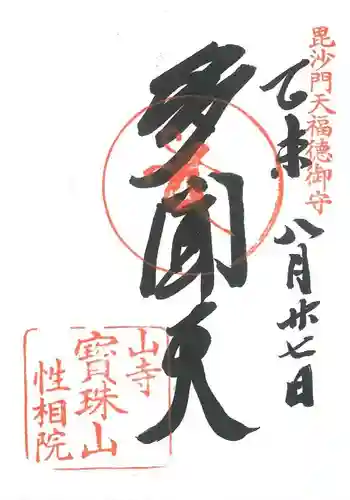 毘沙門天福徳御守
乙未八月廿七日
多聞天
山寺
寳珠山
性相院